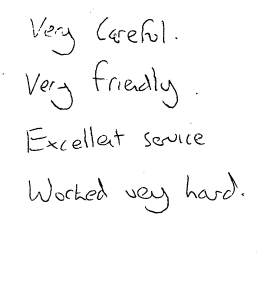 Very Careful.
Very friendly.
Excellent service
Worked very hard.